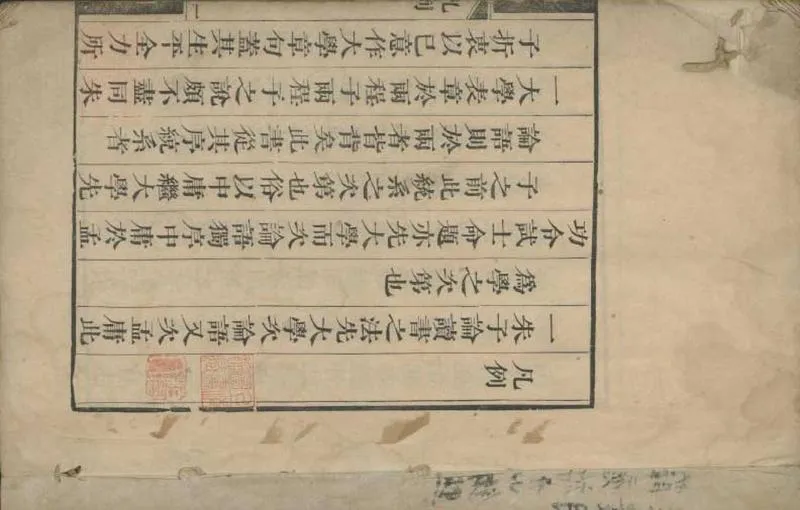 凡例
一朱子論讀書之法先大學次論語又次孟庸此
爲學之次第也
功令試士命題亦先大學而次論語獨序中庸於孟
子之前此統系之次第也俗以中庸繼大學先
論語則於兩者皆背矣此書從其序統系者
一大學表章於兩程子兩程子之說頗不盡同朱
子折衷以己意作大學章句蓋其生平全力所
凡例
一